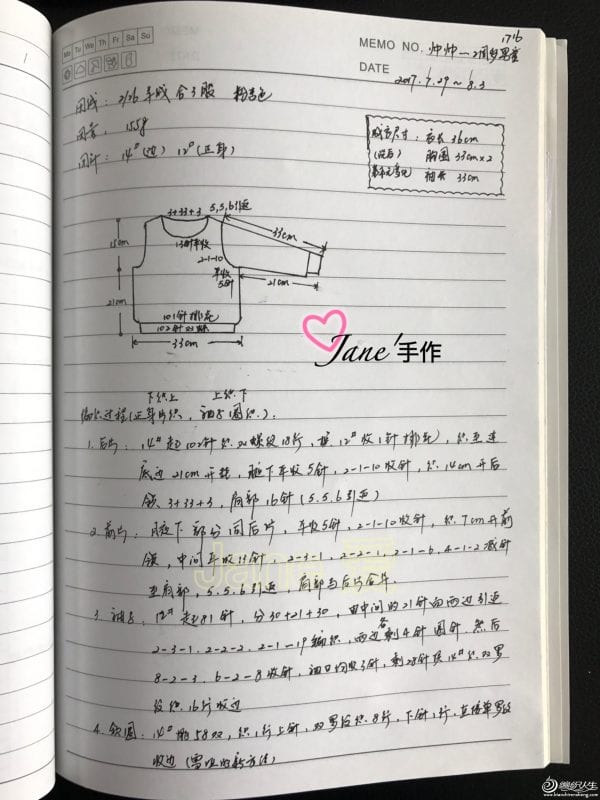 Mo Tu We Th Fr Sa Su
MEMO NO. 帅帅—2周岁
DATE 2017.7.29～8.3
用线：2/26羊绒合3股
用量：155g
用针：14#(边) 12#(正身)
成衣尺寸：衣长36cm
胸围33cm×2
袖长33cm
3+33+3
5,5,6引返
33cm
15cm
13针平收
2-1-10
平收
5针
21cm
21cm
101针排花
102针双螺
33cm
Jane'手作
下织上 上织下
编织过程(正身片织，袖子圆织)：
1.后片：14#起102针织双螺纹18行，换12#收1针排花，织至连
底边21cm开挂，腋下平收5针，2-1-10收针，织14cm开后
领3+33+3，肩部16针(5.5.6引返)
2.前片：腋下部分同后片，平收5针，2-1-10收针，织7cm开前
领，中间平收13针，2-3-1，2-2-1，2-1-6，4-1-2减针
至肩部，5.5.6引返，肩部与后片合并。
3.袖子：12#起81针，分30+21+30，由中间的21针向两边引返
2-3-1，2-2-2，2-1-19编织，两边各剩4针圆针，然后
8-2-3，6-2-8收针，袖口均收3针，剩28针换14#织双罗
纹织16行收边
4.领圈：14#挑58双，织1行上针，双罗纹织8行，下针1行，直接单罗纹
收边
编织人生
www.bianzhirensheng.com